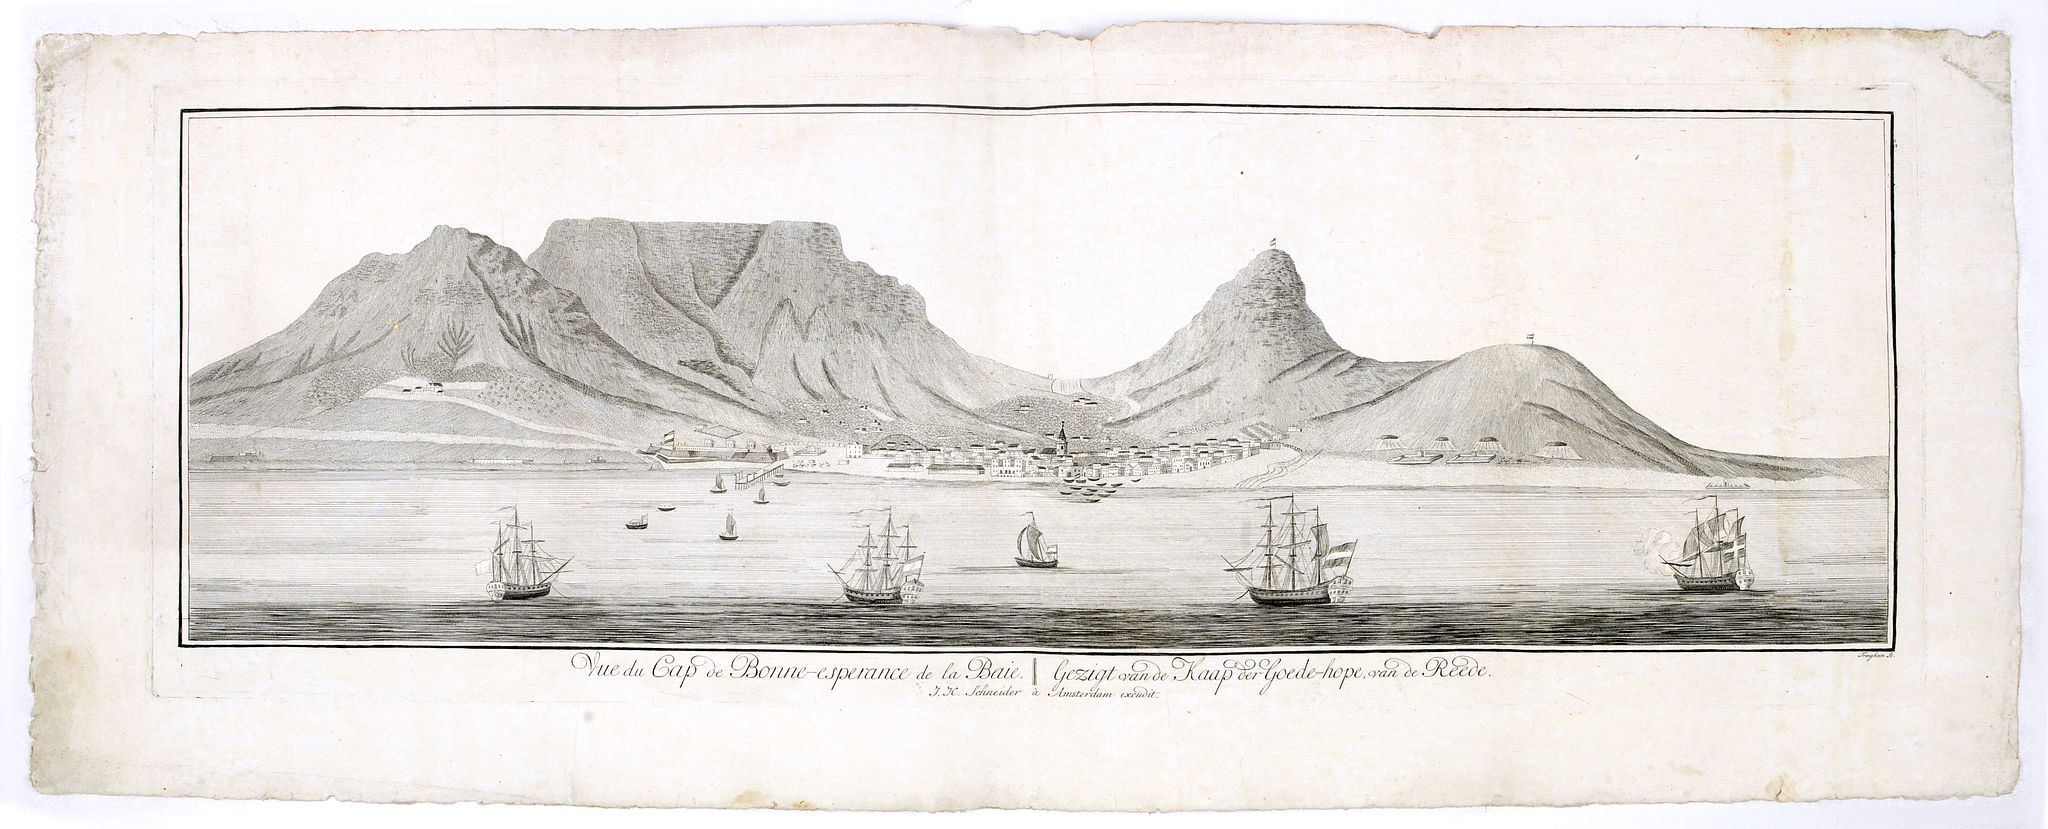 Vue du Cap de Bonne-esperance de la Baie. Gezigt van de Kaap der Goede-hope, van de Reede.
J. H. Schneider à Amsterdam excudit.